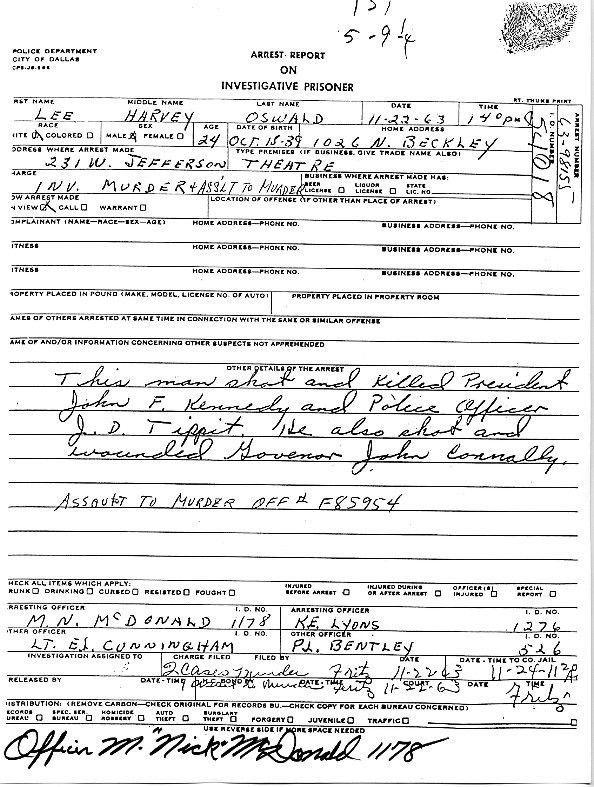 131
5-9 1/4
POLICE DEPARTMENT
CITY OF DALLAS
ARREST REPORT
ON
INVESTIGATIVE PRISONER
RST NAME MIDDLE NAME LAST NAME DATE TIME RT. THUMB PRINT
LEE HARVEY OSWALD 11-22-63 1 40 PM
RACE SEX AGE DATE OF BIRTH HOME ADDRESS
ITE ☑ COLORED ☐ MALE ☑ FEMALE ☐ 24 OCT 18-39 1026 N. BECKLEY
DDRESS WHERE ARREST MADE TYPE PREMISES (IF BUSINESS, GIVE TRADE NAME ALSO)
231 W. JEFFERSON THEATRE
ARREST NUMBER 63-98155
I D NUMBER 54018
HARGE BUSINESS WHERE ARREST MADE HAS:
INV. MURDER & ASSLT TO MURDER BEER LICENSE ☐ LIQUOR LICENSE ☐ STATE LIC. NO.
OW ARREST MADE LOCATION OF OFFENSE (IF OTHER THAN PLACE OF ARREST)
N VIEW ☑ CALL ☐ WARRANT ☐
OMPLAINANT (NAME—RACE—SEX—AGE) HOME ADDRESS—PHONE NO. BUSINESS ADDRESS—PHONE NO.
ITNESS HOME ADDRESS—PHONE NO. BUSINESS ADDRESS—PHONE NO.
ITNESS HOME ADDRESS—PHONE NO. BUSINESS ADDRESS—PHONE NO.
ROPERTY PLACED IN POUND (MAKE, MODEL, LICENSE NO. OF AUTO) PROPERTY PLACED IN PROPERTY ROOM
AMES OF OTHERS ARRESTED AT SAME TIME IN CONNECTION WITH THE SAME OR SIMILAR OFFENSE
AME OF AND/OR INFORMATION CONCERNING OTHER SUSPECTS NOT APPREHENDED
OTHER DETAILS OF THE ARREST
This man shot and killed President
John F. Kennedy and Police Officer
J. D. Tippit. He also shot and
wounded Govenor John Connally.
ASSAULT TO MURDER OFF # F85954
HECK ALL ITEMS WHICH APPLY:
RUNK ☐ DRINKING ☐ CURSED ☐ RESISTED ☐ FOUGHT ☐ INJURED BEFORE ARREST ☐ INJURED DURING OR AFTER ARREST ☐ OFFICER(S) INJURED ☐ SPECIAL REPORT ☐
RRESTING OFFICER I. D. NO. ARRESTING OFFICER I. D. NO.
M. N. McDONALD 1178 K.E. LYONS 1276
THER OFFICER I. D. NO. OTHER OFFICER I. D. NO.
LT. E.L. CUNNINGHAM P.L. BENTLEY 526
INVESTIGATION ASSIGNED TO CHARGE FILED FILED BY DATE DATE - TIME TO CO. JAIL
2 Cases Murder Fritz 11-22-63 11-24-11 20
RELEASED BY DATE-TIME DATE-TIME COURT DATE TIME
Murder Fritz 11-22-63 Fritz
DISTRIBUTION: (REMOVE CARBON—CHECK ORIGINAL FOR RECORDS BU.—CHECK COPY FOR EACH BUREAU CONCERNED)
ECORDS UREAU ☐ SPEC. SER. BUREAU ☐ HOMICIDE ROBBERY ☐ AUTO THEFT ☐ BURGLARY THEFT ☐ FORGERY ☐ JUVENILE ☐ TRAFFIC ☐
USE REVERSE SIDE IF MORE SPACE NEEDED
Officer M. "Nick" McDonald 1178